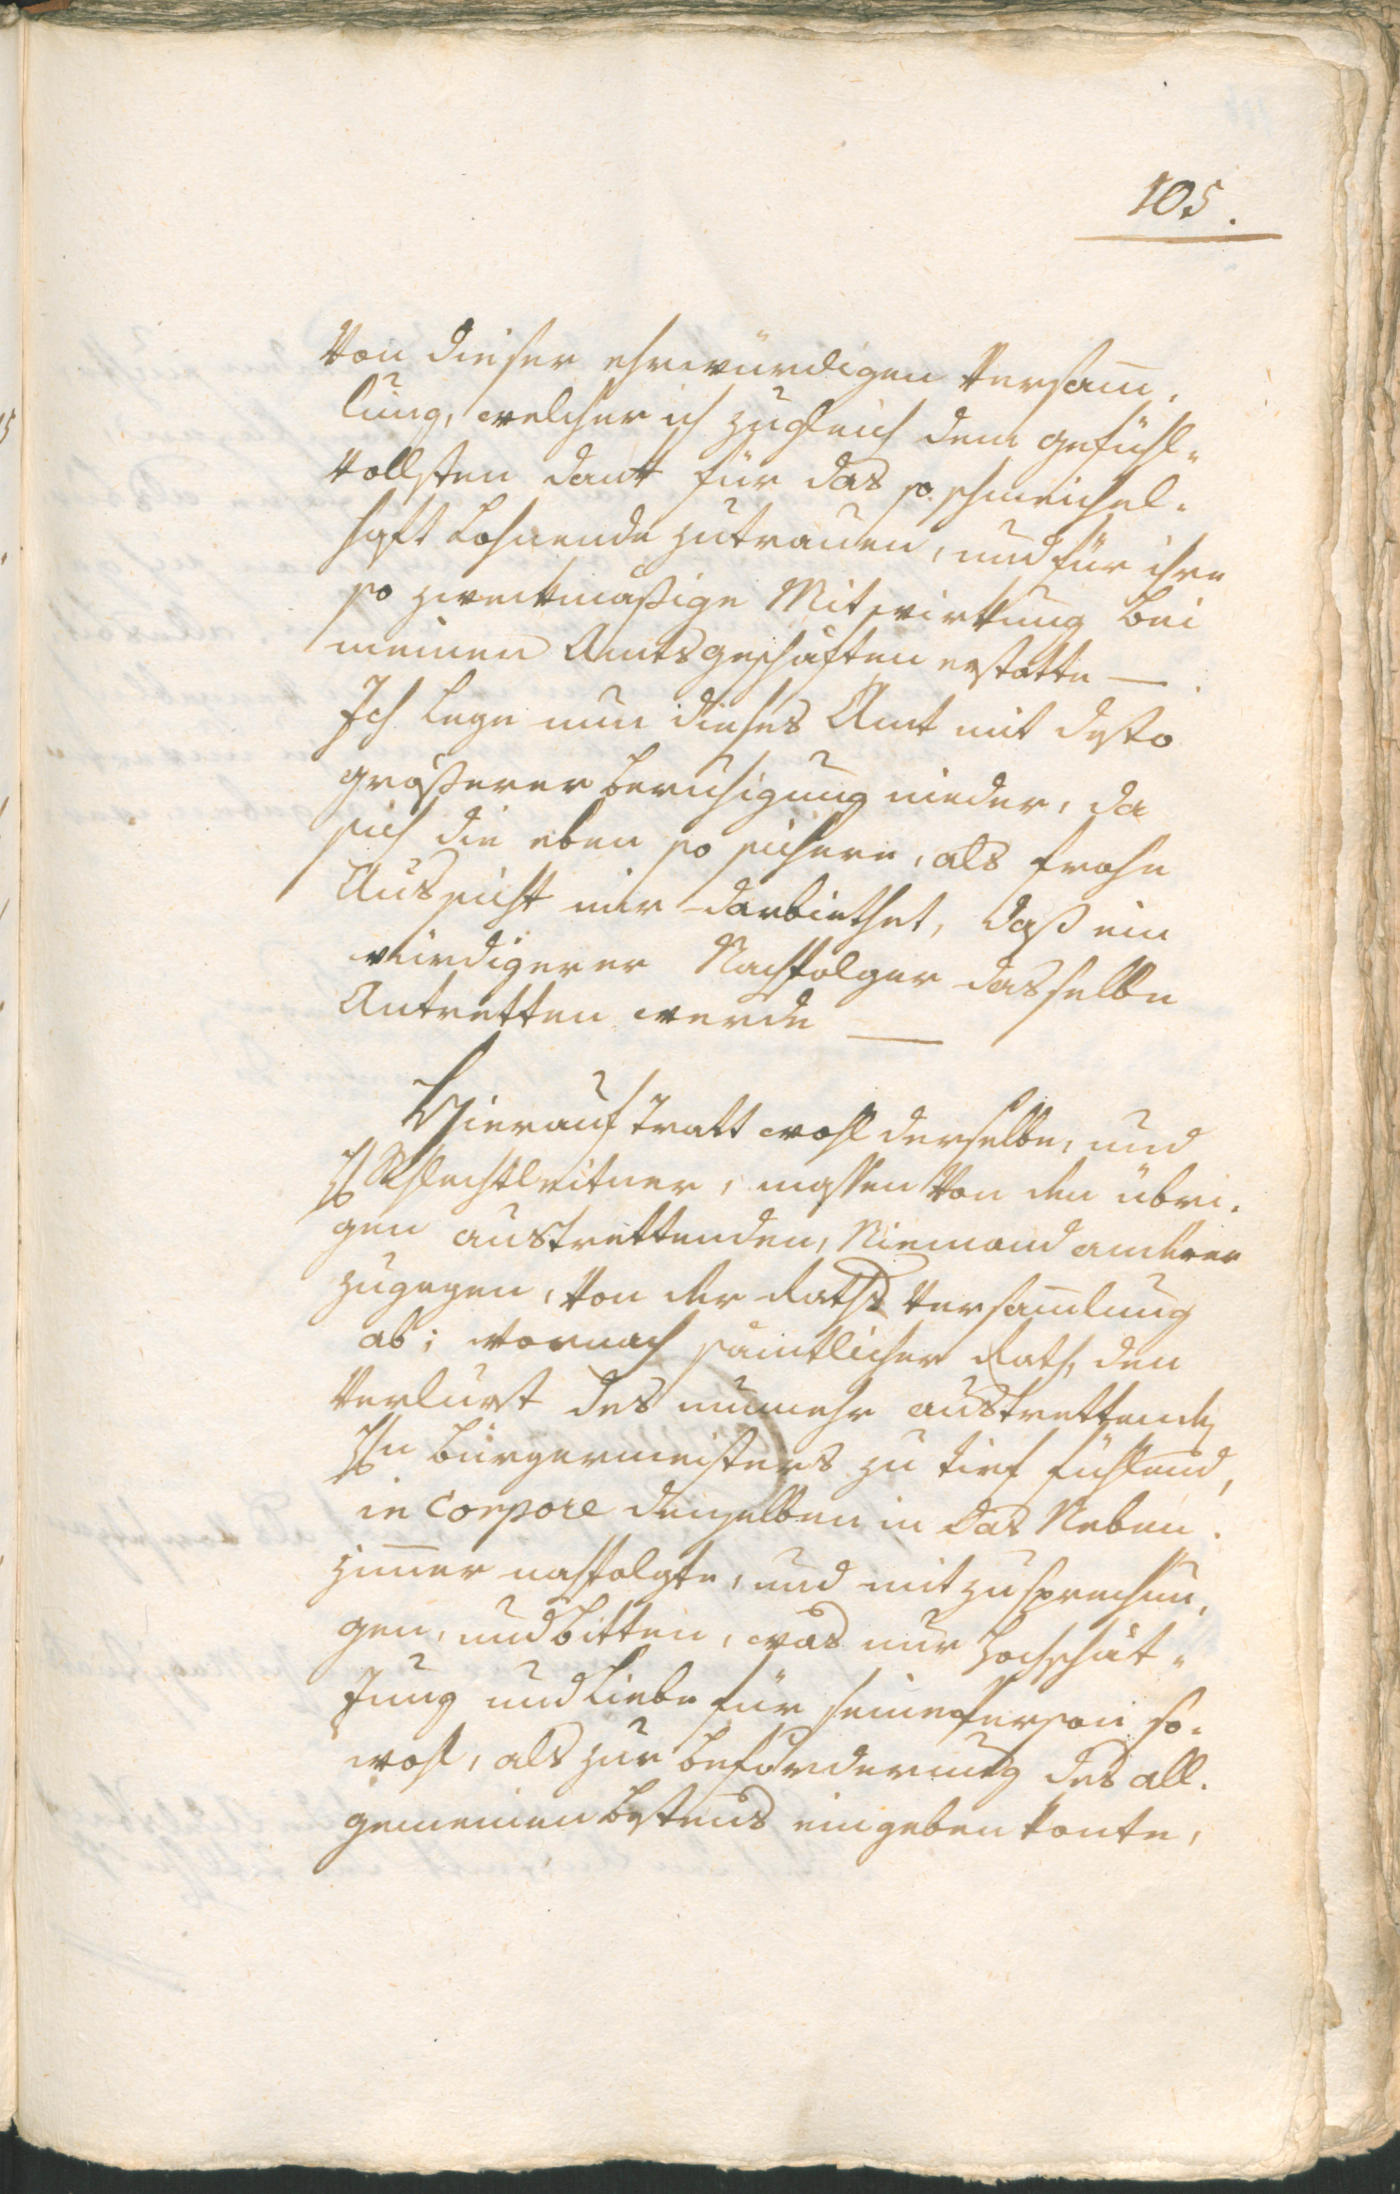 105.
von dieser ehrwürdigen Versam̅,
lung, welcher ich zugleich dem gefühl-
vollsten dank für das so schmeichel-
haft lohnende zutrauen, und für ihre
so zweckmäßige Mitwirkung bei
meinen Amtsgeschäften erstatte —
Ich lege nun dieses Amt mit desto
größerer beruhigung nieder, da
sich die eben so sichere, als frohe
Aussicht mir darbiethet, daß ein
würdigerer Nachfolger dasselbe
Antretten werde —
Hierauf tratt wohl derselbe, und
H Schlechtleitner, massen von den übri-
gen austrettenden, Niemand anderer
zugegen, von der Raths versam̅lung
ab; wornach sämtlicher Rath, den
verlurst des nunmehr austrettenden
Hn bürgermeisters zu tief fühlend,
in Corpore denselben in das Neben-
zim̅er nachfolgte, und mit zusprechun,
gen, und bitten, was nur Hochschät-
zung und liebe für seine Person so-
wohl, als zur beförderung des all-
gemeinen bestens eingeben konte,